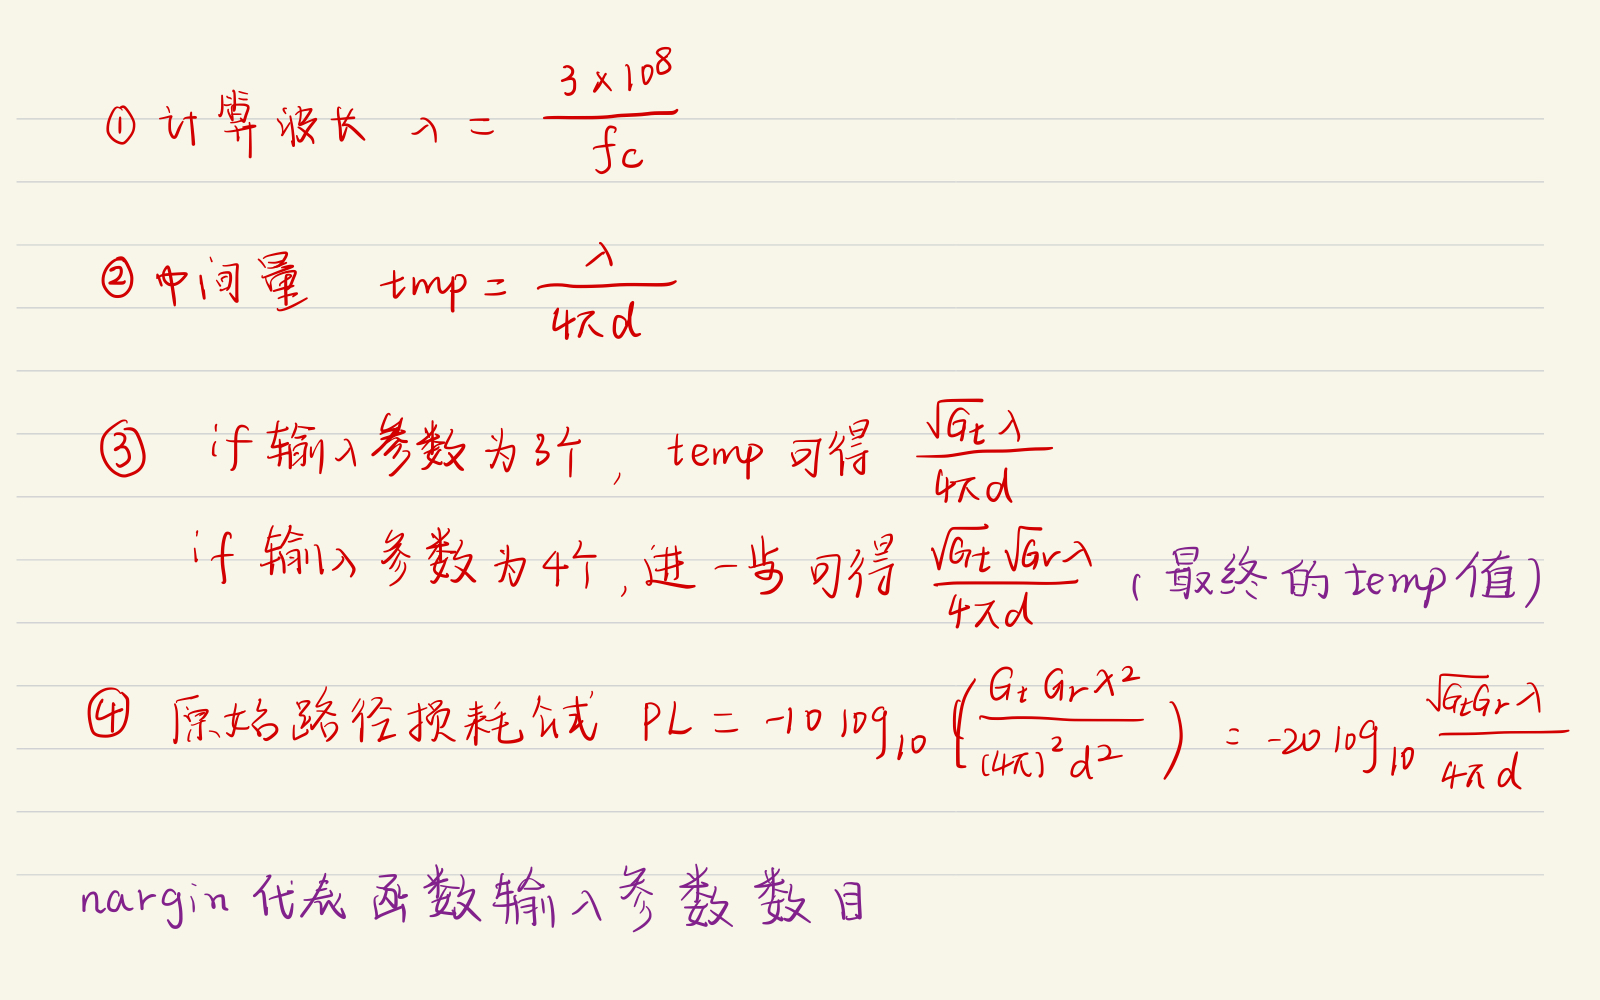 ① 计算波长 λ = 3×10⁸ / fc
② 中间量 tmp = λ / 4πd
③ if 输入参数为3个, temp 可得 √Gt λ / 4πd
if 输入参数为4个, 进一步可得 √Gt √Gr λ / 4πd (最终的temp值)
④ 原始路径损耗公式 PL = -10 log₁₀ (Gt Gr λ² / (4π)² d²) = -20 log₁₀ √GtGr λ / 4πd
nargin 代表函数输入参数数目